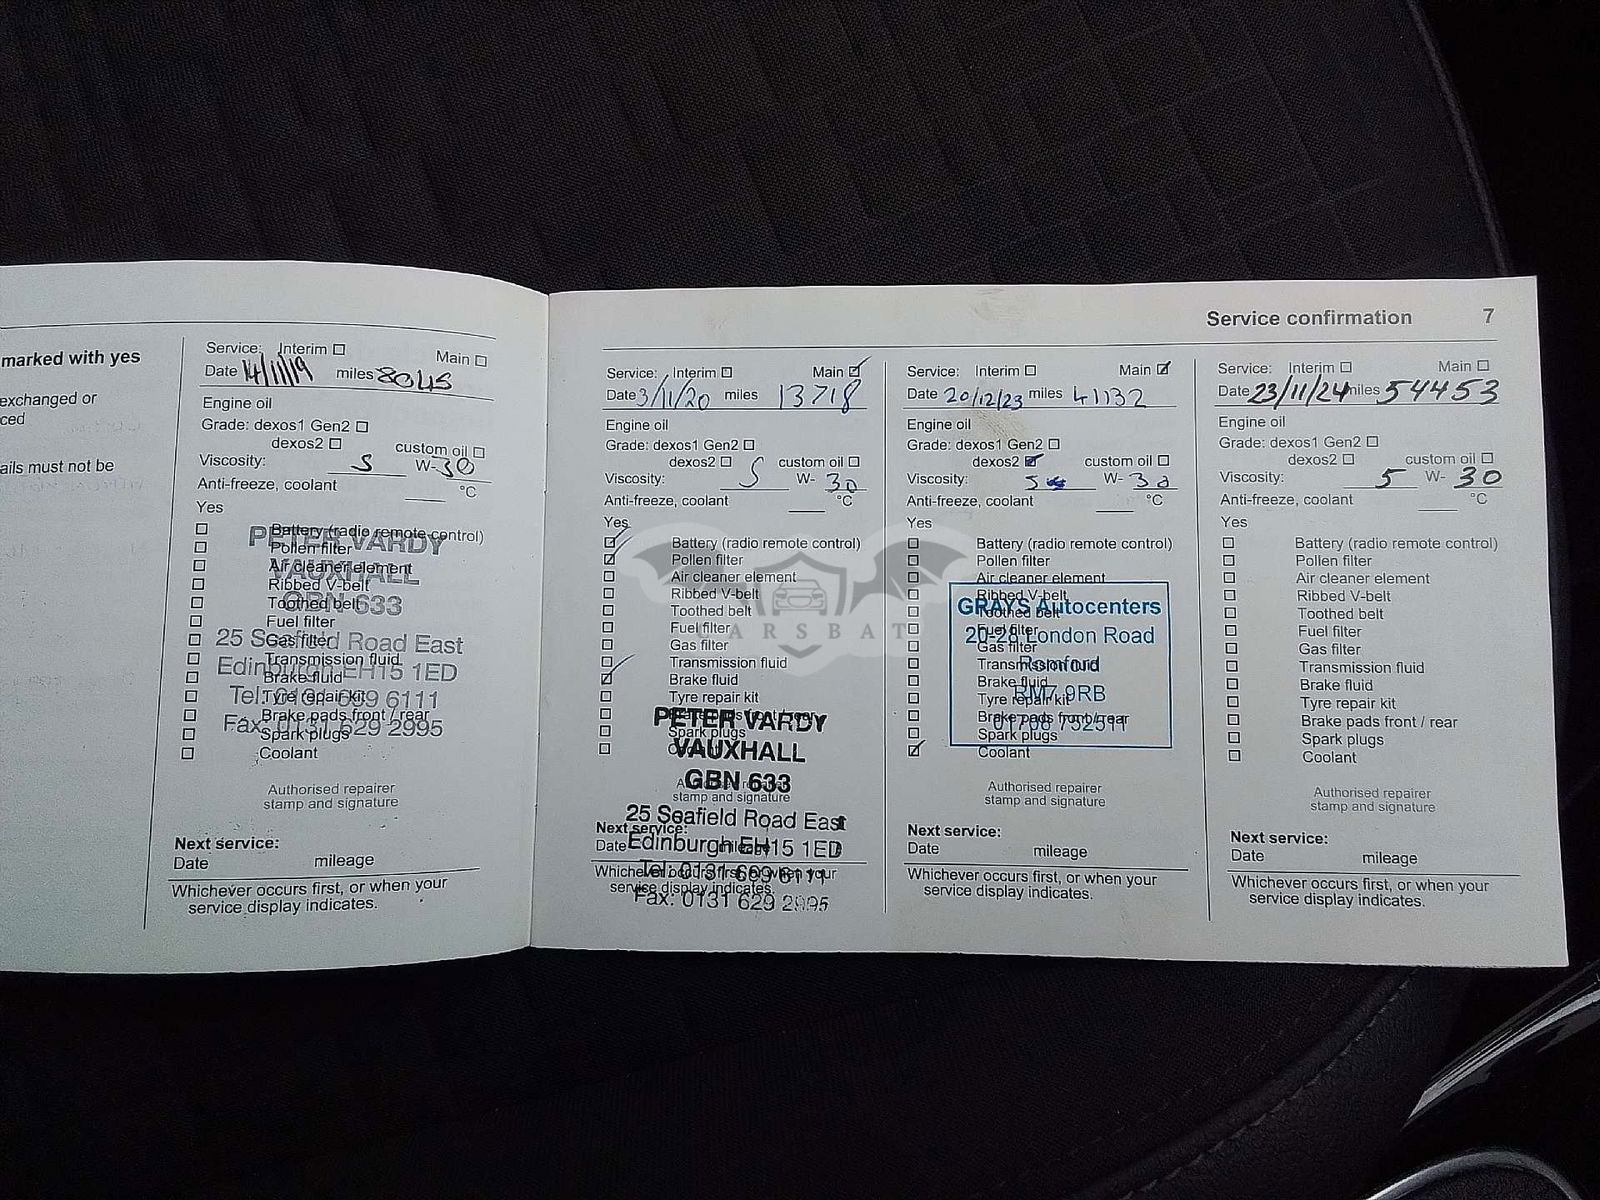 marked with yes
exchanged or
ced
ails must not be
Service: Interim ☐ Main ☐
Date 14/11/19 miles 8045
Engine oil
Grade: dexos1 Gen2 ☐
dexos2 ☐ custom oil ☐
Viscosity: 5 W- 30
Anti-freeze, coolant °C
Yes
☐ Battery (radio remote control)
☐ Pollen filter
☐ Air cleaner element
☐ Ribbed V-belt
☐ Toothed belt
☐ Fuel filter
☐ Gas filter
☐ Transmission fluid
☐ Brake fluid
☐ Tyre repair kit
☐ Brake pads front / rear
☐ Spark plugs
☐ Coolant
PETER VARDY
VAUXHALL
GBN 633
25 Seafield Road East
Edinburgh EH15 1ED
Tel: 0131 669 6111
Fax: 0131 629 2995
Authorised repairer
stamp and signature
Next service:
Date mileage
Whichever occurs first, or when your
service display indicates.
Service confirmation 7
Service: Interim ☐ Main ☑
Date 3/11/20 miles 13718
Engine oil
Grade: dexos1 Gen2 ☐
dexos2 ☐ custom oil ☐
Viscosity: 5 W- 30
Anti-freeze, coolant °C
Yes
☐ Battery (radio remote control)
☑ Pollen filter
☐ Air cleaner element
☐ Ribbed V-belt
☐ Toothed belt
☐ Fuel filter
☐ Gas filter
☐ Transmission fluid
☑ Brake fluid
☐ Tyre repair kit
☐ Brake pads front / rear
☐ Spark plugs
☐ Coolant
PETER VARDY
VAUXHALL
GBN 633
25 Seafield Road East
Edinburgh EH15 1ED
Tel: 0131 669 6111
Fax: 0131 629 2995
Authorised repairer
stamp and signature
Next service:
Date mileage
Whichever occurs first, or when your
service display indicates.
Service: Interim ☐ Main ☑
Date 20/12/23 miles 41132
Engine oil
Grade: dexos1 Gen2 ☐
dexos2 ☑ custom oil ☐
Viscosity: 5 W- 30
Anti-freeze, coolant °C
Yes
☐ Battery (radio remote control)
☐ Pollen filter
☐ Air cleaner element
☐ Ribbed V-belt
☐ Toothed belt
☐ Fuel filter
☐ Gas filter
☐ Transmission fluid
☐ Brake fluid
☐ Tyre repair kit
☐ Brake pads front / rear
☐ Spark plugs
☑ Coolant
GRAYS Autocenters
20-28 London Road
Romford
RM7 9RB
01708 732511
Authorised repairer
stamp and signature
Next service:
Date mileage
Whichever occurs first, or when your
service display indicates.
Service: Interim ☐ Main ☐
Date 23/11/24 miles 54453
Engine oil
Grade: dexos1 Gen2 ☐
dexos2 ☐ custom oil ☐
Viscosity: 5 W- 30
Anti-freeze, coolant °C
Yes
☐ Battery (radio remote control)
☐ Pollen filter
☐ Air cleaner element
☐ Ribbed V-belt
☐ Toothed belt
☐ Fuel filter
☐ Gas filter
☐ Transmission fluid
☐ Brake fluid
☐ Tyre repair kit
☐ Brake pads front / rear
☐ Spark plugs
☐ Coolant
Authorised repairer
stamp and signature
Next service:
Date mileage
Whichever occurs first, or when your
service display indicates.
CARSBAT